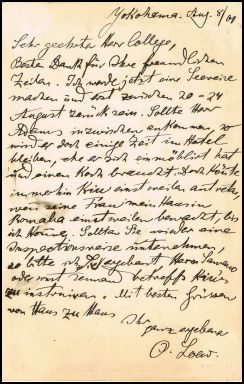 Yokohama. Aug. 8/01
Sehr geehrter Herr College,
Besten Dank für Ihre freundlichen
Zeilen. Ich werde jetzt eine Seereise
machen und erst zwischen 20-24
August zurück sein. Sollte Herr
inzwischen ankommen, so
wird er doch einige Zeit im Hotel
bleiben, ehe er sich einmöblirt hat
und einen Koch braucht. Doch könnte
immerhin einstweilen
wenn seine Frau mein Haus in
Komaba einstweilen benutzt, bis
ich komme. Sollten Sie wieder eine
Inspectionsreise unternehmen,
so bitte ich Herrn Sawano
oder sonst jemand betreffs
zu instruiren. Mit besten Grüssen
von Haus zu Haus
Ihr
ganz ergebener
O. Loew.